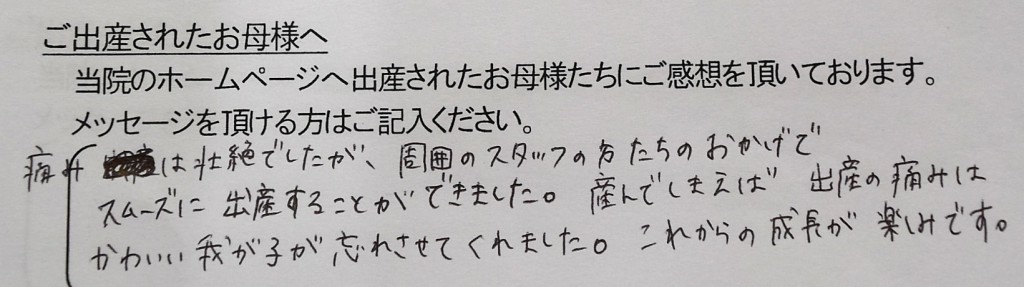 ご出産されたお母様へ
当院のホームページへ出産されたお母様たちにご感想を頂いております。
メッセージを頂ける方はご記入ください。
痛みは壮絶でしたが、周囲のスタッフの方たちのおかげで
スムーズに出産することができました。産んでしまえば出産の痛みは
かわいい我が子が忘れさせてくれました。これからの成長が楽しみです。